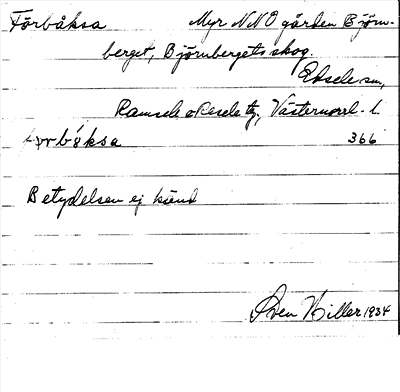 Förbåksa Myr NNO gården Björn-
berget, Björnbergets skog.
Edsele sn,
Ramsele o Resele tg, Västernorrl. l.
båksa 366
Betydelsen ej känd
Sven Hiller 1934